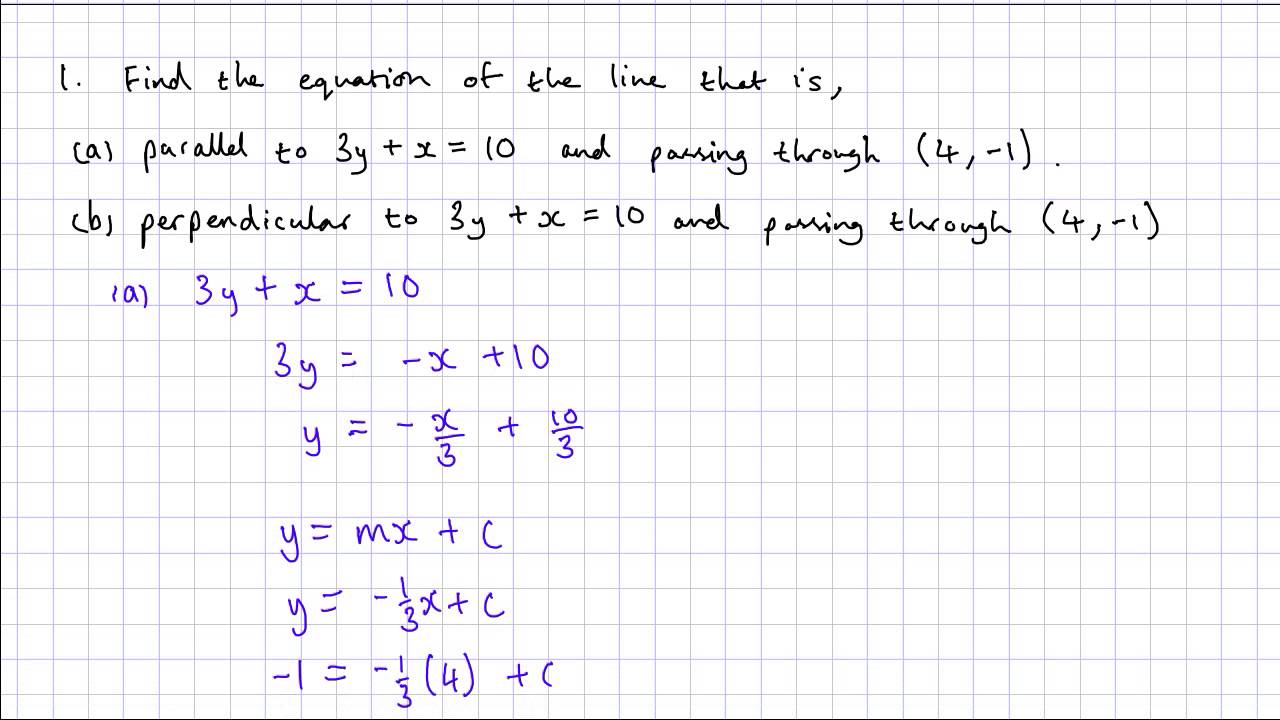 1. Find the equation of the line that is,
(a) parallel to 3y + x = 10 and passing through (4, -1).
(b) perpendicular to 3y + x = 10 and passing through (4, -1)
(a) 3y + x = 10
3y = -x + 10
y = -x/3 + 10/3
y = mx + c
y = -1/3x + c
-1 = -1/3(4) + c